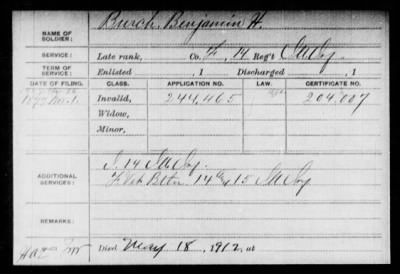 NAME OF SOLDIER: Burch, Benjamin H.
SERVICE: Late rank, Co. F, 14 Reg't Ill Inf
TERM OF SERVICE: Enlisted , 1 Discharged , 1
DATE OF FILING. CLASS. APPLICATION NO. LAW. CERTIFICATE NO.
Invalid, 244,465 204,007
Widow,
Minor,
ADDITIONAL SERVICES: 14 Ill Inf.
F Vet Battn 14 & 15 Ill Inf
REMARKS:
Died May 18, 1912, at